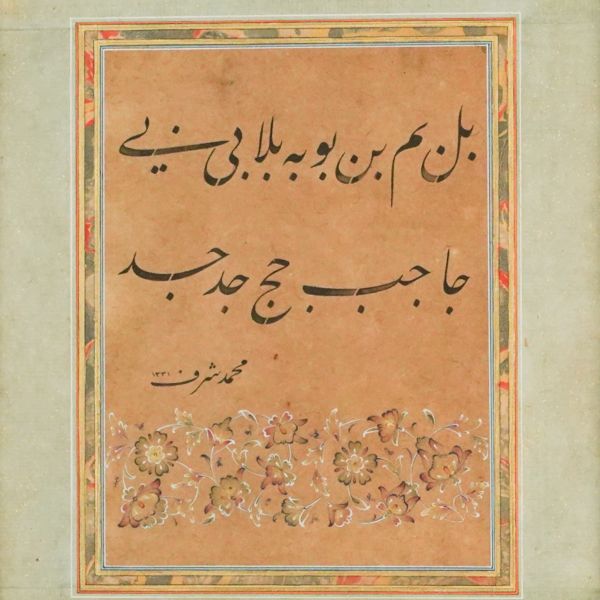 بل بم بن بو به بلا بی یے
جا جب حج جد جد
محمد شرف ۱۳۳۱